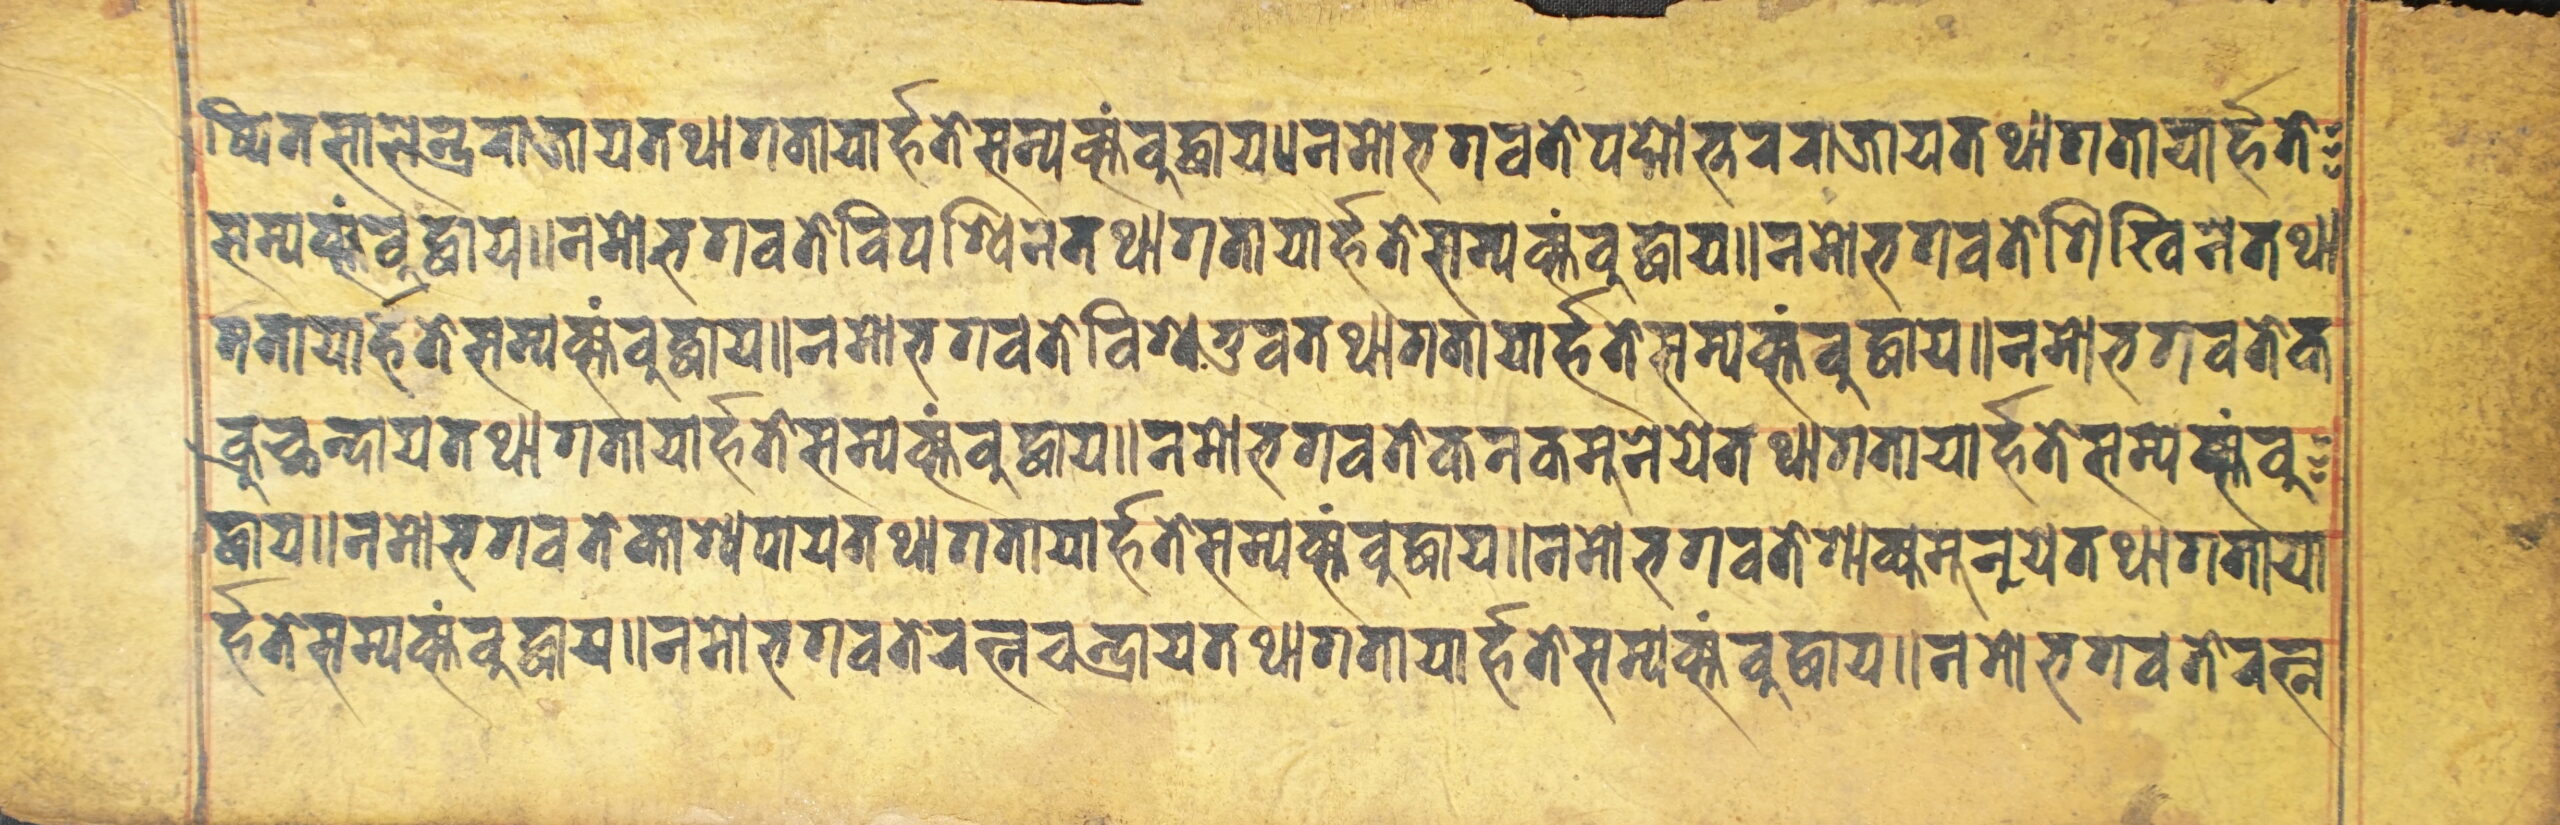 ष्पितसालेन्द्रराजायतथागतायार्हतेसम्यक्संबुद्धाय॥नमोभगवतेपद्मोत्तरराजायतथागतायार्हते
सम्यक्संबुद्धाय॥नमोभगवतेविपश्विनेतथागतायार्हतेसम्यक्संबुद्धाय॥नमोभगवतेशिखिनेतथा
गतायार्हतेसम्यक्संबुद्धाय॥नमोभगवतेविश्वभुवतथागतायार्हतेसम्यक्संबुद्धाय॥नमोभगवतेक
क्रुच्छन्दायतथागतायार्हतेसम्यक्संबुद्धाय॥नमोभगवतेकनकमुनेयेतथागतायार्हतेसम्यक्संबु
द्धाय॥नमोभगवतेकाश्यपायतथागतायार्हतेसम्यक्संबुद्धाय॥नमोभगवतेशाक्यमुनयेतथागताया
र्हतेसम्यक्संबुद्धाय॥नमोभगवतेरत्नचन्द्रायतथागतायार्हतेसम्यक्संबुद्धाय॥नमोभगवतेरत्न